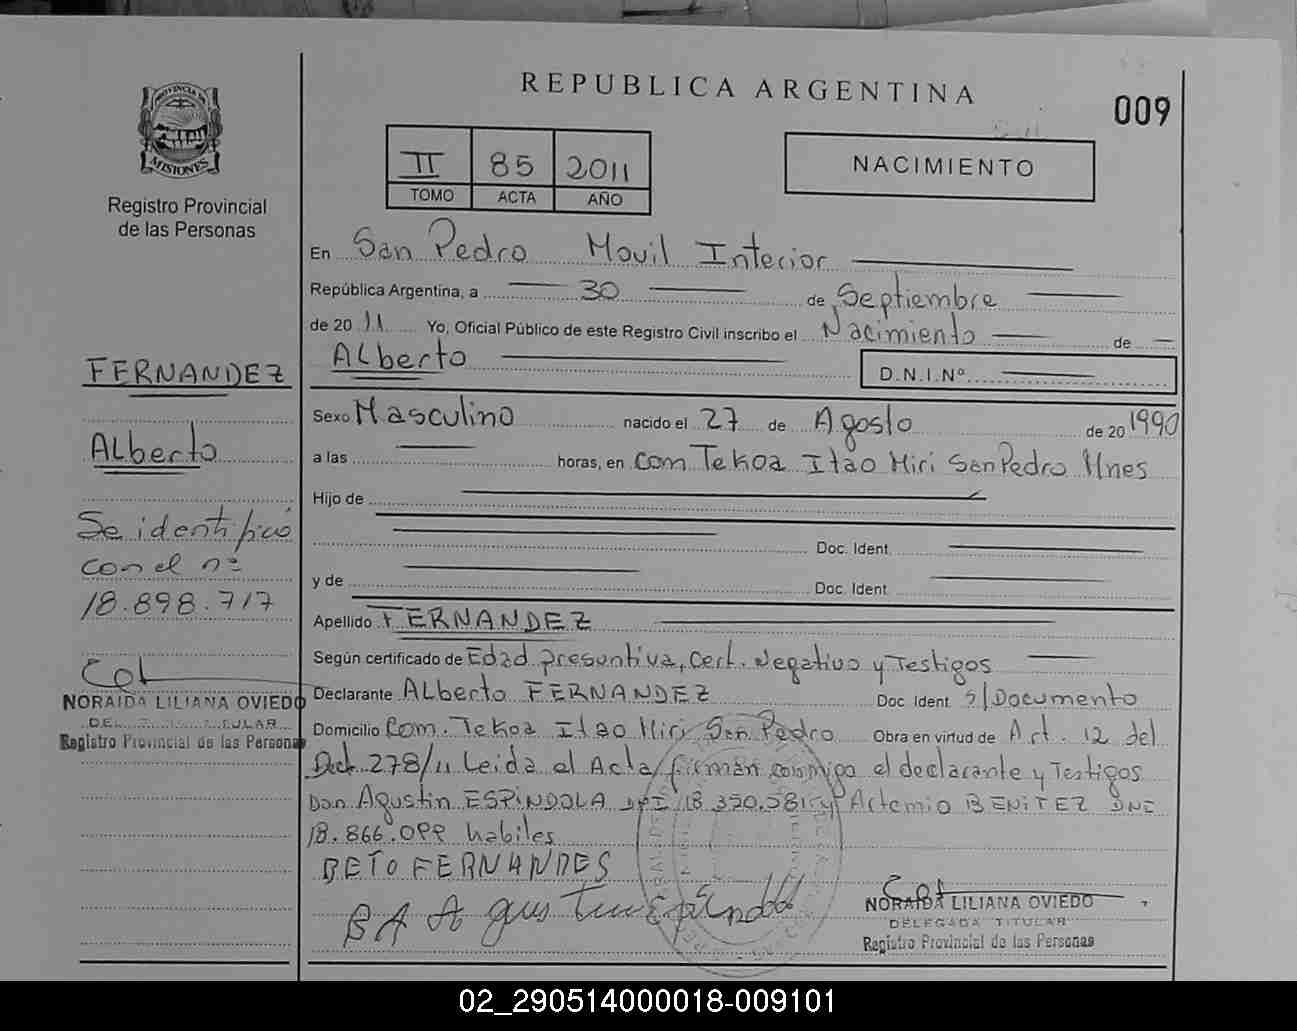 REPUBLICA ARGENTINA
009
PROVINCIA DE
MISIONES
Registro Provincial
de las Personas
II 85 2011
TOMO ACTA AÑO
NACIMIENTO
En San Pedro Movil Interior
República Argentina, a 30 de Septiembre
de 20 11 Yo, Oficial Público de este Registro Civil inscribo el Nacimiento de
ALberto
D.N.I.Nº
FERNANDEZ
ALberto
Se identificó
con el nº
18.898.717
NORAIDA LILIANA OVIEDO
Registro Provincial de las Personas
Sexo Masculino nacido el 27 de Agosto de 20 1990
a las horas, en com Tekoa Itao Miri San Pedro Mnes
Hijo de
Doc. Ident.
y de Doc. Ident.
Apellido FERNANDEZ
Según certificado de Edad presuntiva, Cert. Negativo y Testigos
Declarante ALberto FERNANDEZ Doc. Ident. s/Documento
Domicilio Com. Tekoa Itao Miri San Pedro Obra en virtud de Art. 12 del
Dect. 278/11 Leida el Acta firman conmigo el declarante y Testigos
Don Agustin ESPINDOLA DNI y Artemio BENITEZ DNI
18.866.099 habiles
BETO FERNANDES
BA Agustin Espindola
NORAIDA LILIANA OVIEDO
DELEGADA TITULAR
Registro Provincial de las Personas
02_290514000018-009101